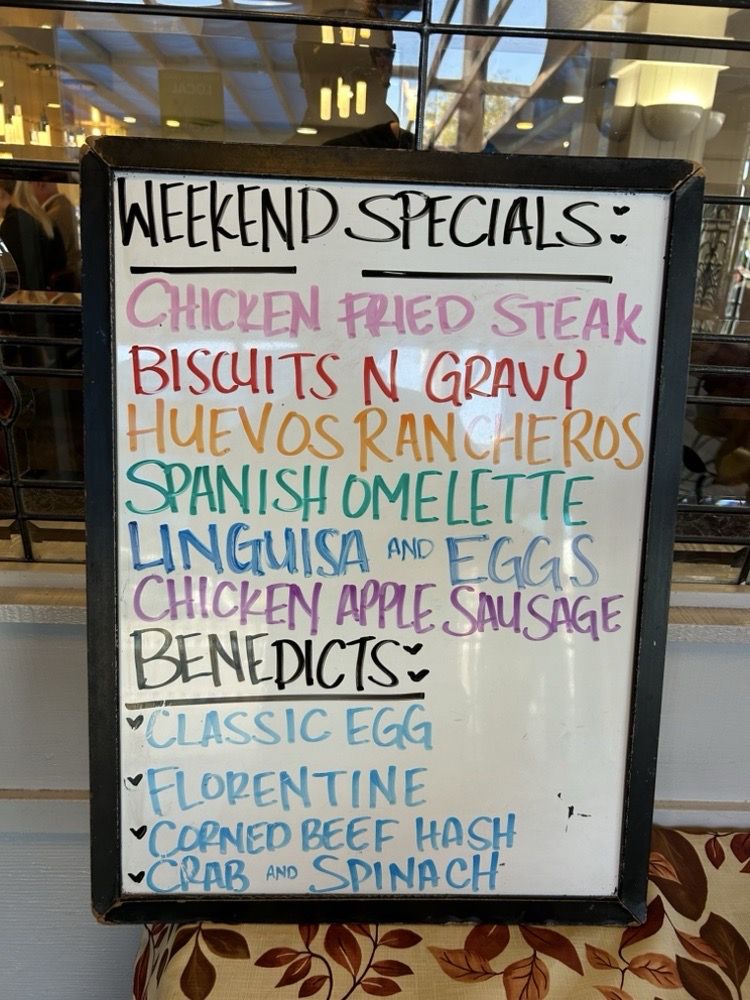 LOCAL
WEEKEND SPECIALS:
CHICKEN FRIED STEAK
BISCUITS N GRAVY
HUEVOS RANCHEROS
SPANISH OMELETTE
LINGUISA AND EGGS
CHICKEN APPLE SAUSAGE
BENEDICTS:
CLASSIC EGG
FLORENTINE
CORNED BEEF HASH
CRAB AND SPINACH